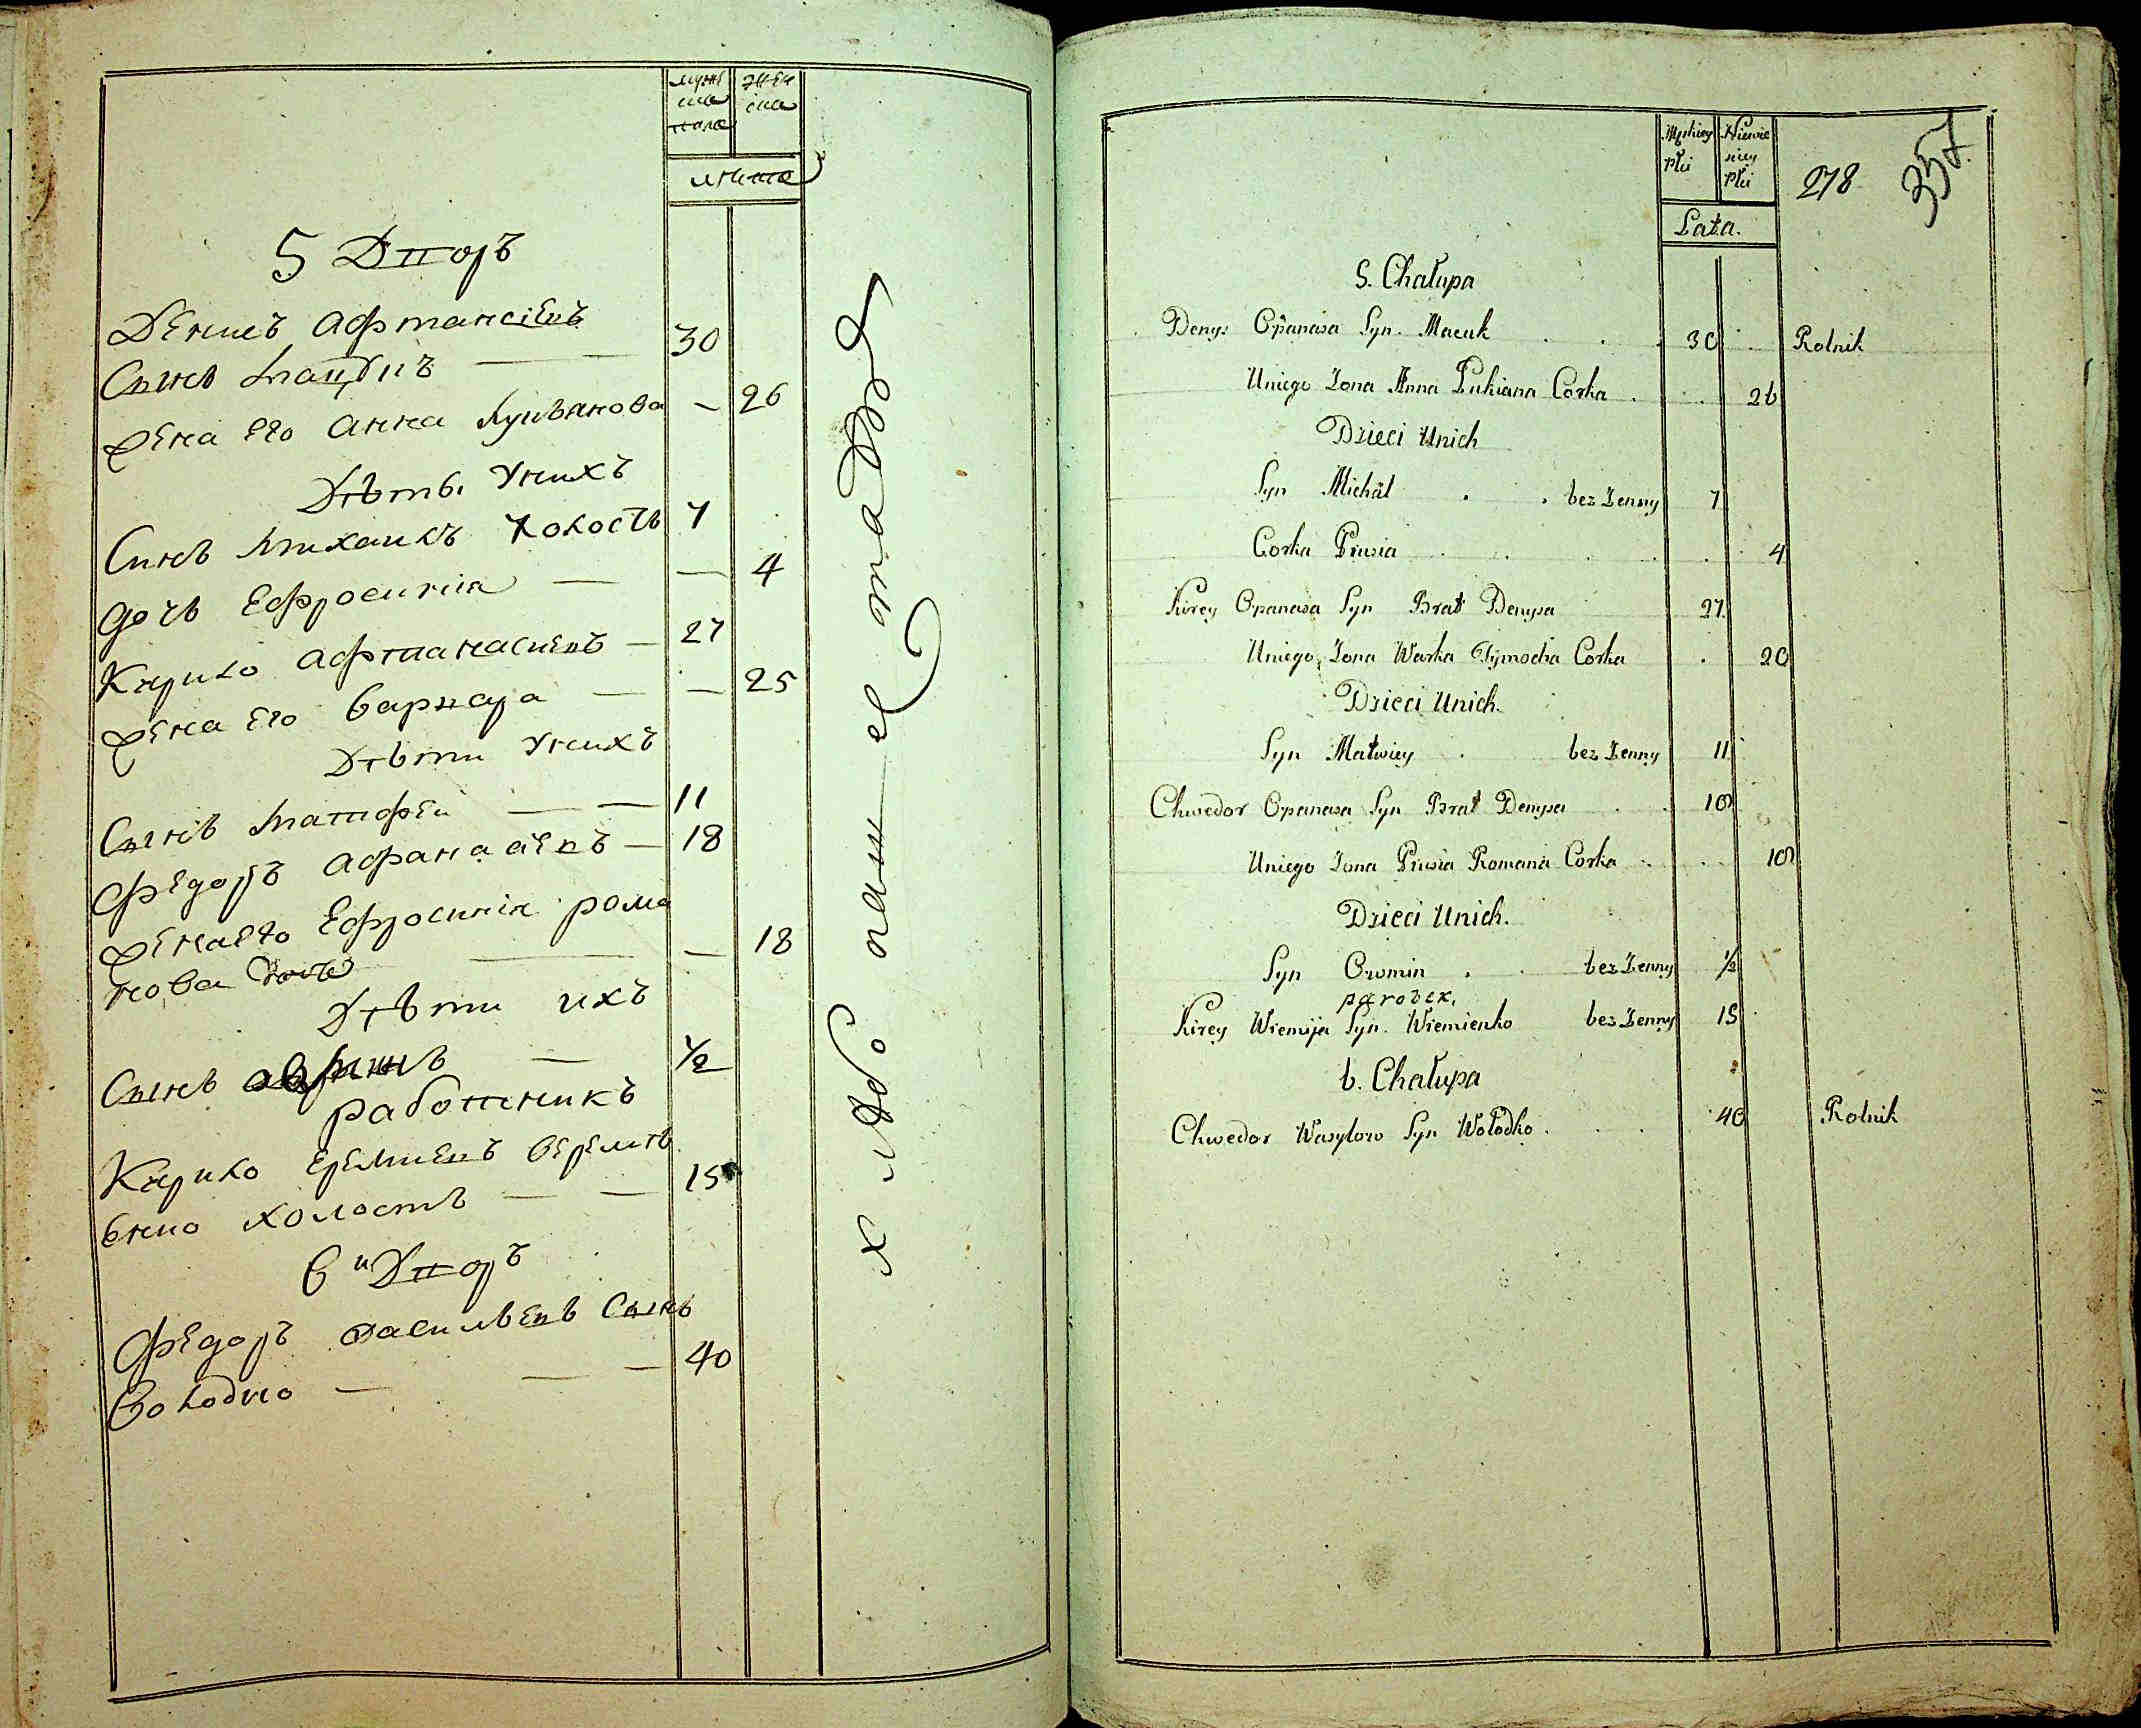 мужс жен
ка ска
пола
лѣта
5 Дворъ
Денисъ Афтанасіевъ
Сынъ Мацукъ — — 30
Жена его Анна Лукьянова — 26
Дѣти Унихъ
Сынъ Михаилъ холостъ 7
Дочь Ефросинія — — 4
Кирило Афтанасиевъ — 27
Жена его Варвара — — 25
Дѣти Унихъ
Сынъ Матфей — — 11
Федоръ Афанасіевъ — 18
Жена его Ефросинія Рома
нова Дочь — — 18
Дѣти ихъ
Сынъ — 1/2
работникъ
Кирило Еремиевъ Веремѣ
енко холостъ — — 15
6й Дворъ
Федоръ Васильевъ Сынъ
Володко — — — 40
хлѣбопашецства
Męskiey Niewie
Płci sciey
Płci
278 357.
Lata.
5. Chałupa
Denys Opanasa Syn. Macuk . . . 30 . Rolnik
Uniego Zona Anna Łukiana Corka . . . 26
Dzieci Unich
Syn Michał . . bez Zenny 7
Corka Prusia . . . . . 4
Kirey Opanasa Syn Brat Denysa 27.
Uniego Zona Warka Tymocha Corka . 20
Dzieci Unich.
Syn Matwiey . bez Zenny 11
Chwedor Opanasa Syn Brat Denysa . . 18
Uniego Zona Prusia Romana Corka . . . 18
Dzieci Unich.
Syn . . bez Zenny 1/2
parobek,
Kirey Wiemija Syn. Wiemienko bez Zenny 15
6. Chałupa
Chwedor Wasylow Syn Wołodko . . . 40 Rolnik